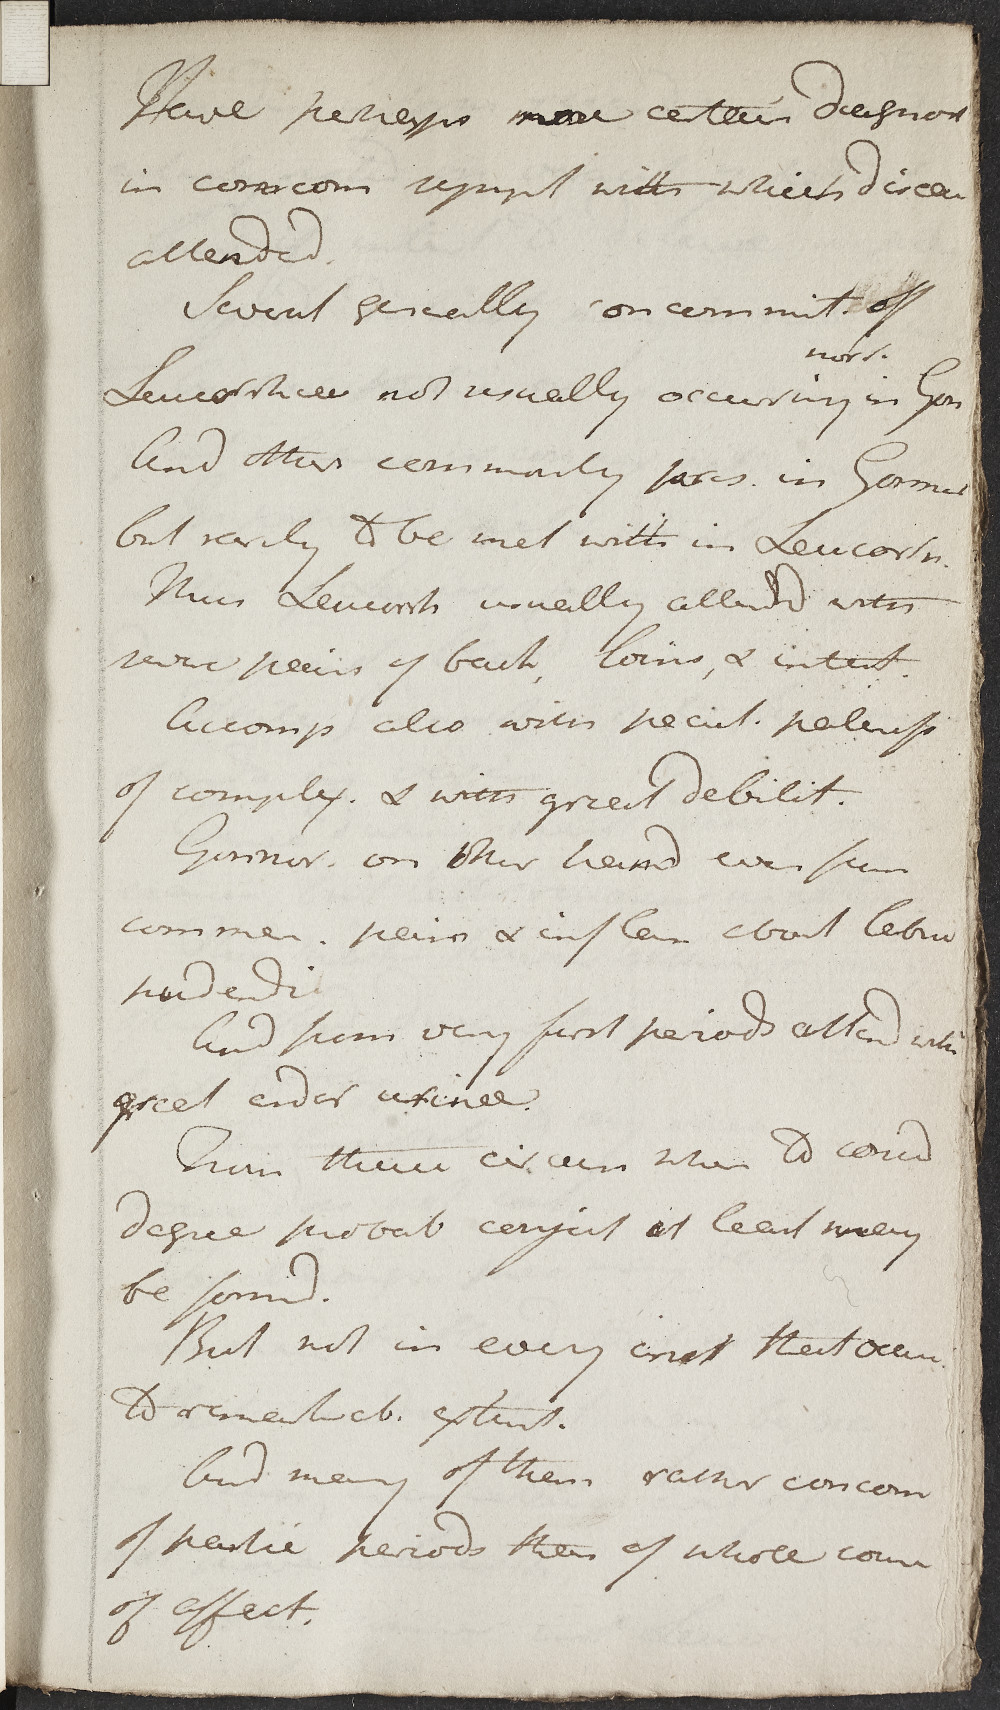 Have perhaps more certain diagnost
in concom sympt with which disea
attended.
Several generally concommit. of
Leucorrhaea not usually occurring in Gon
norr.
And others commonly pres. in Gonnor
but rarely to be met with in Leucorh.
Thus Leucorrh usually attend with
severe pains of back, loins, & intest.
Accomp also with pecul. paleness
of complex. & with great debilit.
Gonnor. on other hand even from
commen. pain & inflam about labia
pudendi
And from very first periods attend with
great ardor urinae.
From these circum when to consid
degree probab conject at least may
be form'd.
But not in every inst that occur
to remarkab. extent.
And many of them rather concom
of partic periods than of whole cour
of affect.